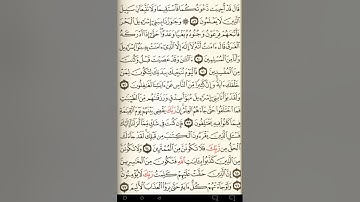 قَالَ قَدْ أُجِيبَت دَّعْوَتُكُمَا فَٱسْتَقِيمَا وَلَا تَتَّبِعَآنِّ سَبِيلَ
ٱلَّذِينَ لَا يَعْلَمُونَ ٨٩ ۞ وَجَٰوَزْنَا بِبَنِىٓ إِسْرَٰٓءِيلَ ٱلْبَحْرَ
فَأَتْبَعَهُمْ فِرْعَوْنُ وَجُنُودُهُۥ بَغْيًا وَعَدْوًا حَتَّىٰٓ إِذَآ أَدْرَكَهُ
ٱلْغَرَقُ قَالَ ءَامَنتُ أَنَّهُۥ لَآ إِلَٰهَ إِلَّا ٱلَّذِىٓ ءَامَنَتْ بِهِۦ بَنُوٓا۟ إِسْرَٰٓءِيلَ
وَأَنَا۠ مِنَ ٱلْمُسْلِمِينَ ٩٠ ءَآلْـَٰٔنَ وَقَدْ عَصَيْتَ قَبْلُ وَكُنتَ
مِنَ ٱلْمُفْسِدِينَ ٩١ فَٱلْيَوْمَ نُنَجِّيكَ بِبَدَنِكَ لِتَكُونَ لِمَنْ
خَلْفَكَ ءَايَةً وَإِنَّ كَثِيرًا مِّنَ ٱلنَّاسِ عَنْ ءَايَٰتِنَا لَغَٰفِلُونَ ٩٢
وَلَقَدْ بَوَّأْنَا بَنِىٓ إِسْرَٰٓءِيلَ مُبَوَّأَ صِدْقٍ وَرَزَقْنَٰهُم مِّنَ ٱلطَّيِّبَٰتِ
فَمَا ٱخْتَلَفُوا۟ حَتَّىٰ جَآءَهُمُ ٱلْعِلْمُ إِنَّ رَبَّكَ يَقْضِى بَيْنَهُمْ يَوْمَ ٱلْقِيَٰمَةِ
فِيمَا كَانُوا۟ فِيهِ يَخْتَلِفُونَ ٩٣ فَإِن كُنتَ فِى شَكٍّ مِّمَّآ أَنزَلْنَآ إِلَيْكَ
فَسْـَٔلِ ٱلَّذِينَ يَقْرَءُونَ ٱلْكِتَٰبَ مِن قَبْلِكَ لَقَدْ جَآءَكَ
ٱلْحَقُّ مِن رَّبِّكَ فَلَا تَكُونَنَّ مِنَ ٱلْمُمْتَرِينَ ٩٤ وَلَا تَكُونَنَّ
مِنَ ٱلَّذِينَ كَذَّبُوا۟ بِـَٔايَٰتِ ٱللَّهِ فَتَكُونَ مِنَ ٱلْخَٰسِرِينَ
٩٥ إِنَّ ٱلَّذِينَ حَقَّتْ عَلَيْهِمْ كَلِمَتُ رَبِّكَ لَا يُؤْمِنُونَ
٩٦ وَلَوْ جَآءَتْهُمْ كُلُّ ءَايَةٍ حَتَّىٰ يَرَوُا۟ ٱلْعَذَابَ ٱلْأَلِيمَ ٩٧